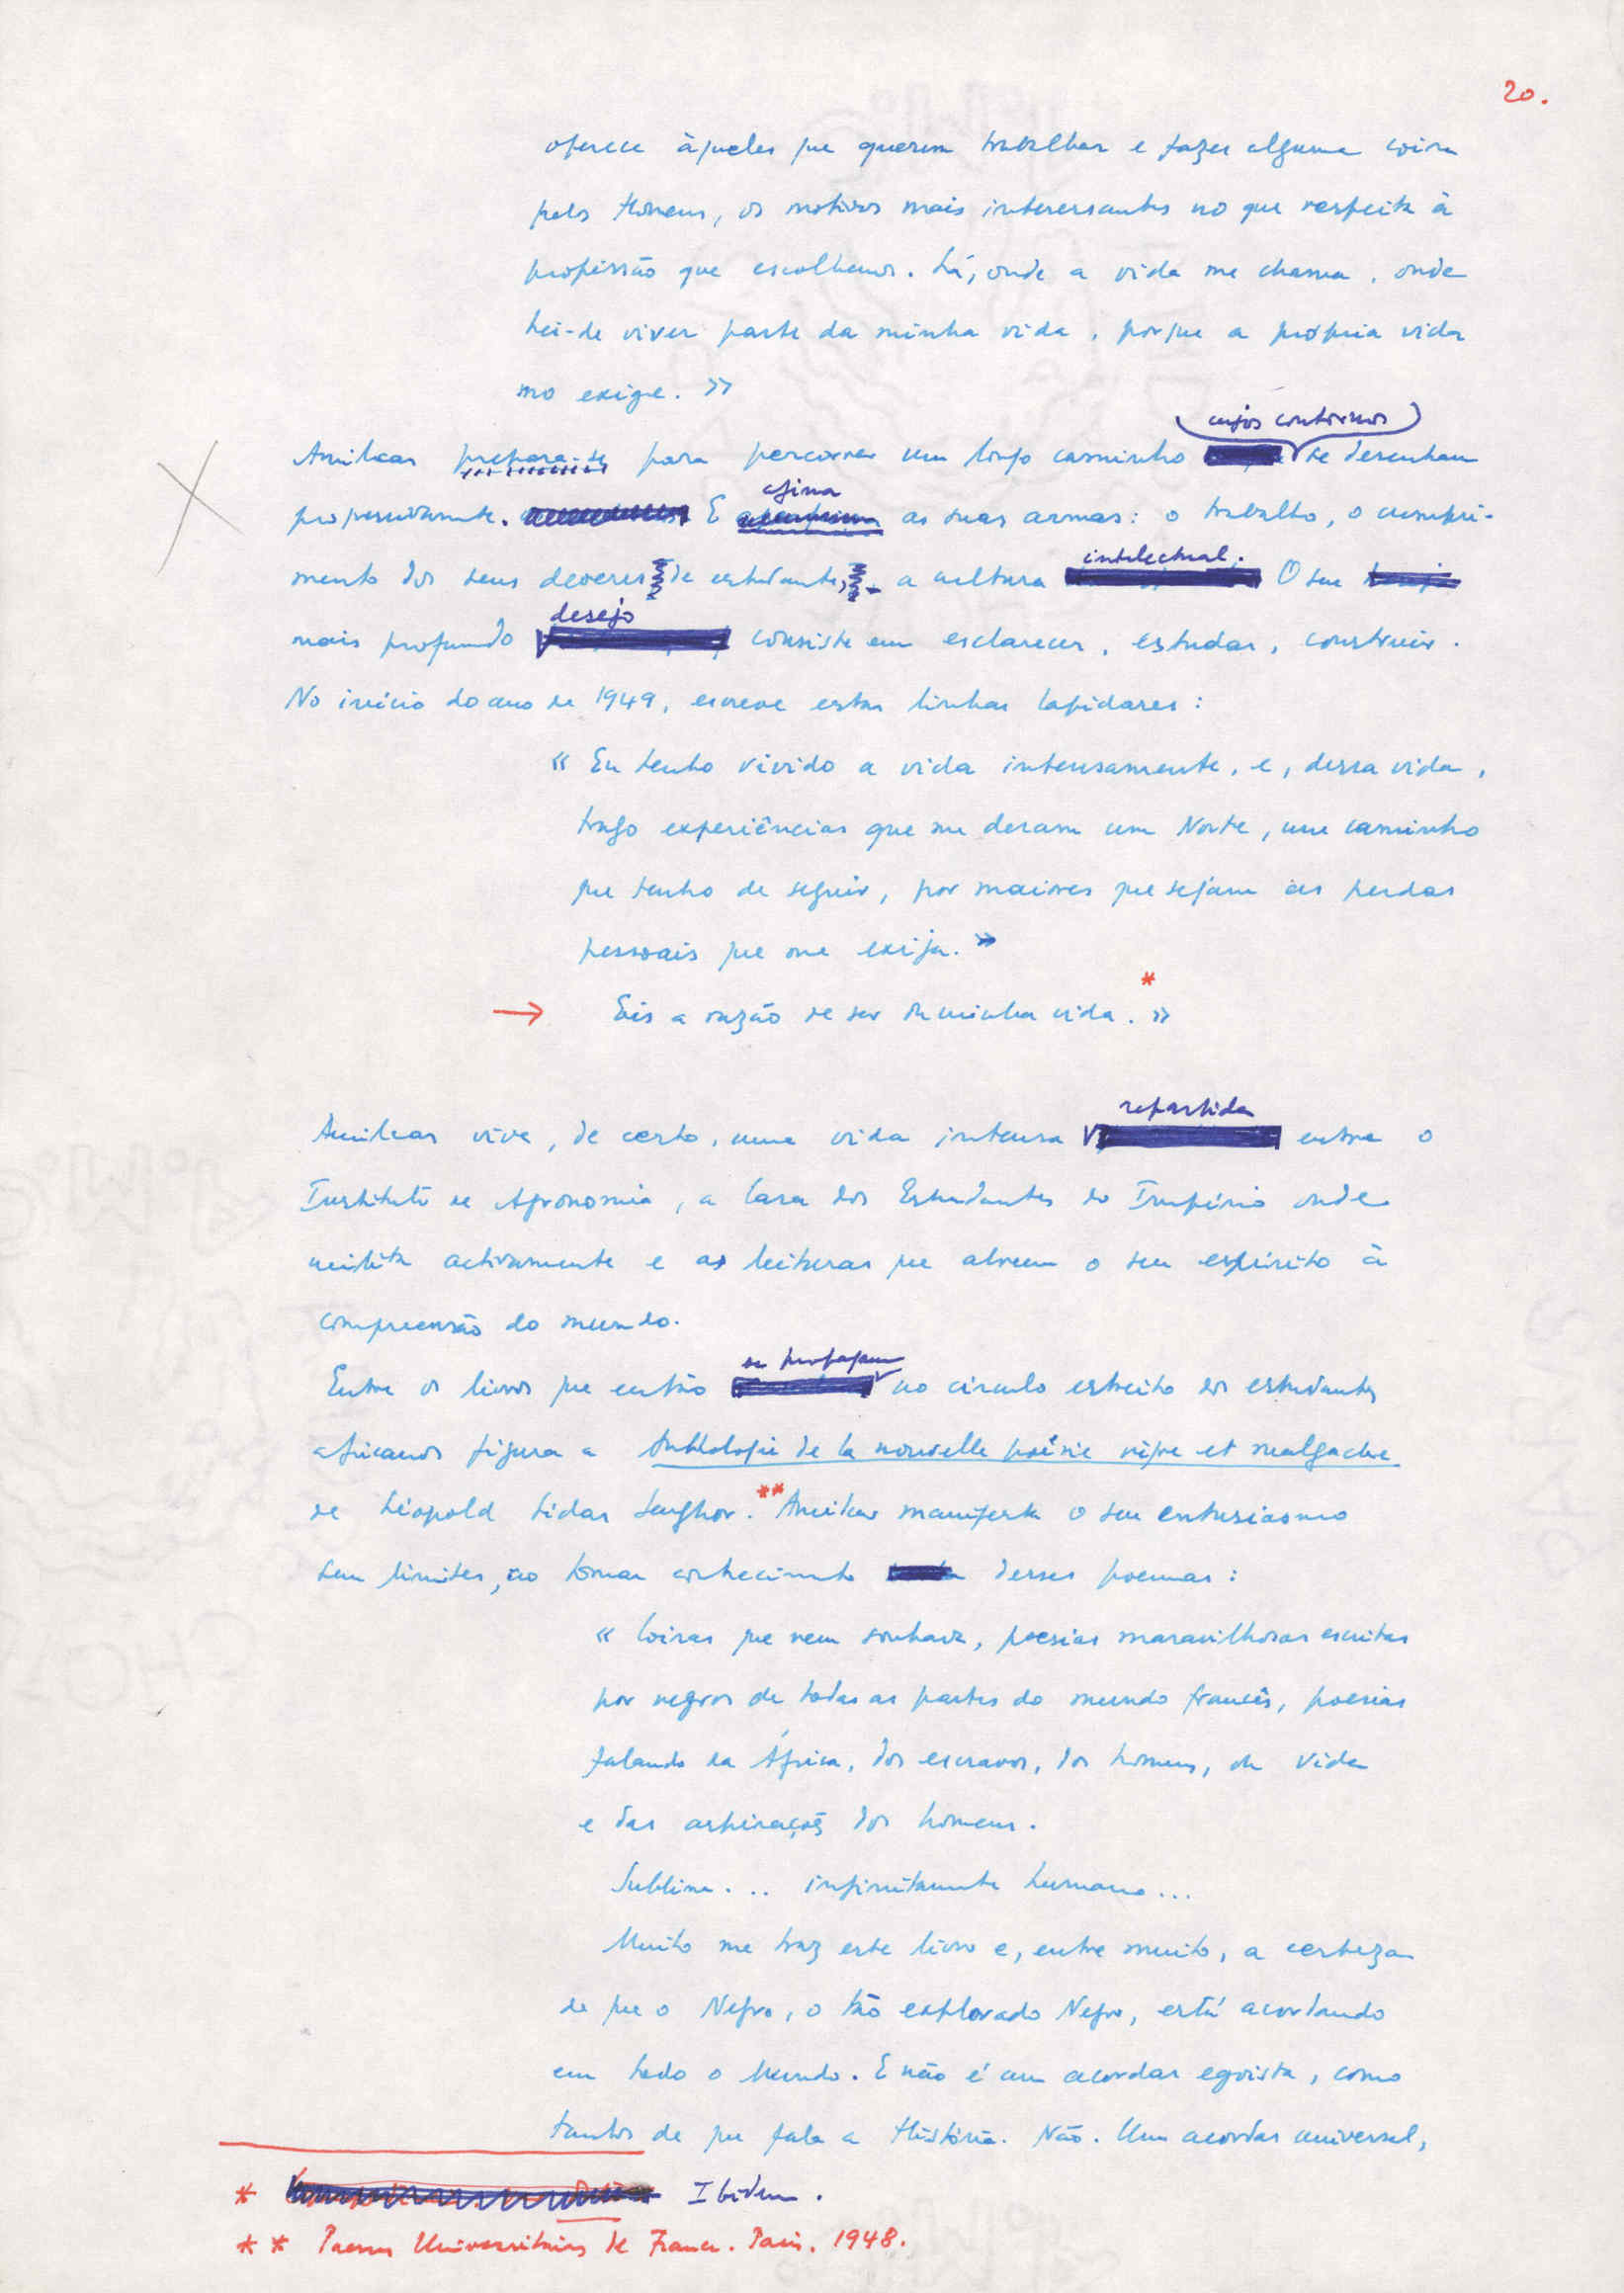 20.
oferece àqueles que querem trabalhar e fazer alguma coisa
pelos Homens, os motivos mais interessantes no que respeita à
profissão que escolhemos. Lá, onde a vida me chama, onde
hei-de viver parte da minha vida, porque a própria vida
mo exige. »
cujos contornos
Amilcar prepara-se para percorrer um longo caminho se desenham
progressivamente. E afina as suas armas: o trabalho, o cumpri-
mento dos seus deveres de estudante, a cultura intelectual. O seu
mais profundo desejo consiste em esclarecer, estudar, construir.
No início do ano de 1949, escreve estas linhas lapidares:
« Eu tenho vivido a vida intensamente, e, dessa vida,
trago experiências que me deram um Norte, um caminho
que tenho de seguir, por maiores que sejam as perdas
pessoais que me exija. »
*
→ Eis a razão de ser da minha vida. »
repartida
Amilcar vive, de certo, uma vida intensa entre o
Instituto de Agronomia, a Casa dos Estudantes do Império onde
milita activamente e as leituras que abrem o seu espírito à
compreensão do mundo.
se propagam
Entre os livros que então no círculo estreito dos estudantes
africanos figura a Anthologie de la nouvelle poésie nègre et malgache
de Léopold Sédar Senghor.** Amilcar manifesta o seu entusiasmo
sem limites, ao tomar conhecimento desses poemas:
« Coisas que nem sonhava, poesias maravilhosas escritas
por negros de todas as partes do mundo francês, poesias
falando da África, dos escravos, dos homens, da vida
e das aspirações dos homens.
Sublime... infinitamente humano...
Muito me traz este livro e, entre muito, a certeza
de que o Negro, o tão explorado Negro, está acordando
em todo o Mundo. E não é um acordar egoísta, como
tantos de que fala a História. Não. Um acordar universal,
* Ibidem.
** Presses Universitaires de France. Paris. 1948.